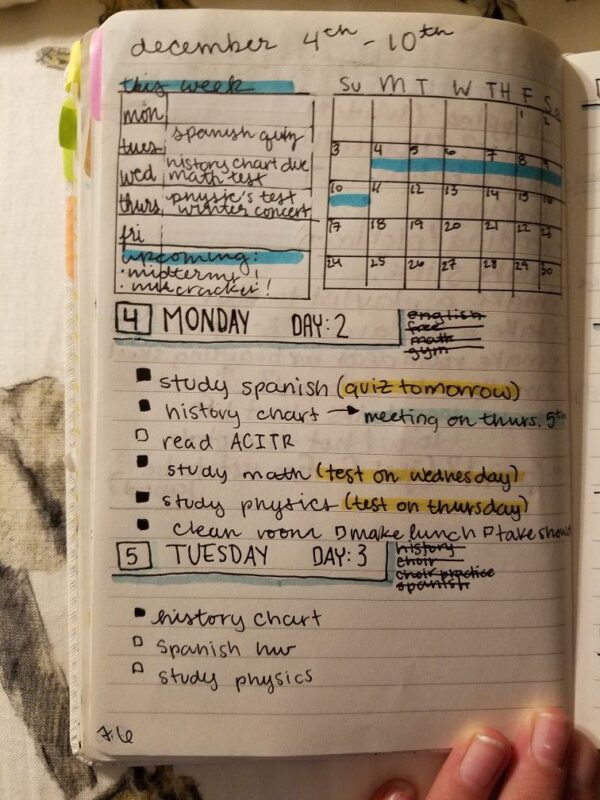 december 4th - 10th
this week
mon
tues spanish quiz
wed history chart due
math test
thurs physic's test
winter concert
fri
upcoming:
· midterms!
· nutcracker!
Su M T W TH F Sa
1 2
3 4 5 6 7 8 9
10 11 12 13 14 15 16
17 18 19 20 21 22 23
24 25 26 27 28 29 30
4 MONDAY DAY: 2
english
free
math
gym
study spanish (quiz tomorrow)
history chart → meeting on thurs. 5th
read ACITR
study math (test on wednesday)
study physics (test on thursday)
clean room make lunch take show
5 TUESDAY DAY: 3
history
choir
choir practice
spanish
history chart
spanish hw
study physics